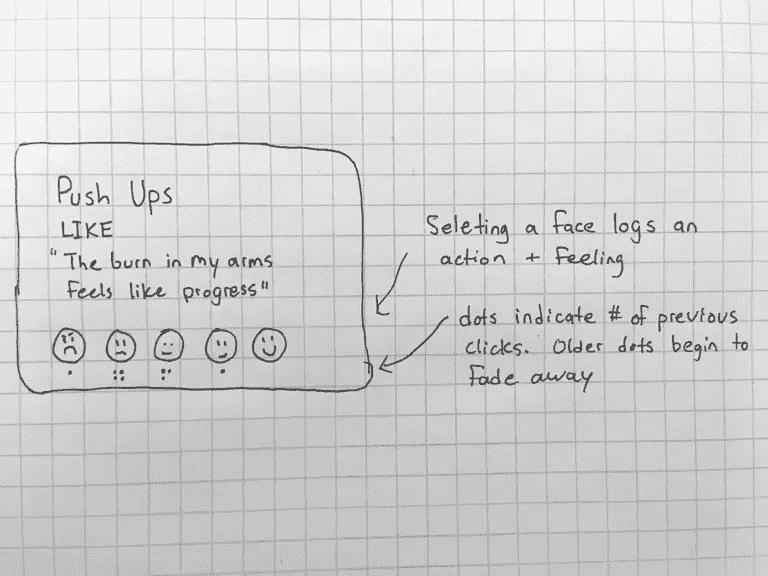 Push Ups
LIKE
"The burn in my arms
feels like progress"
Seleting a face logs an
action + feeling
dots indicate # of previous
clicks. Older dots begin to
fade away